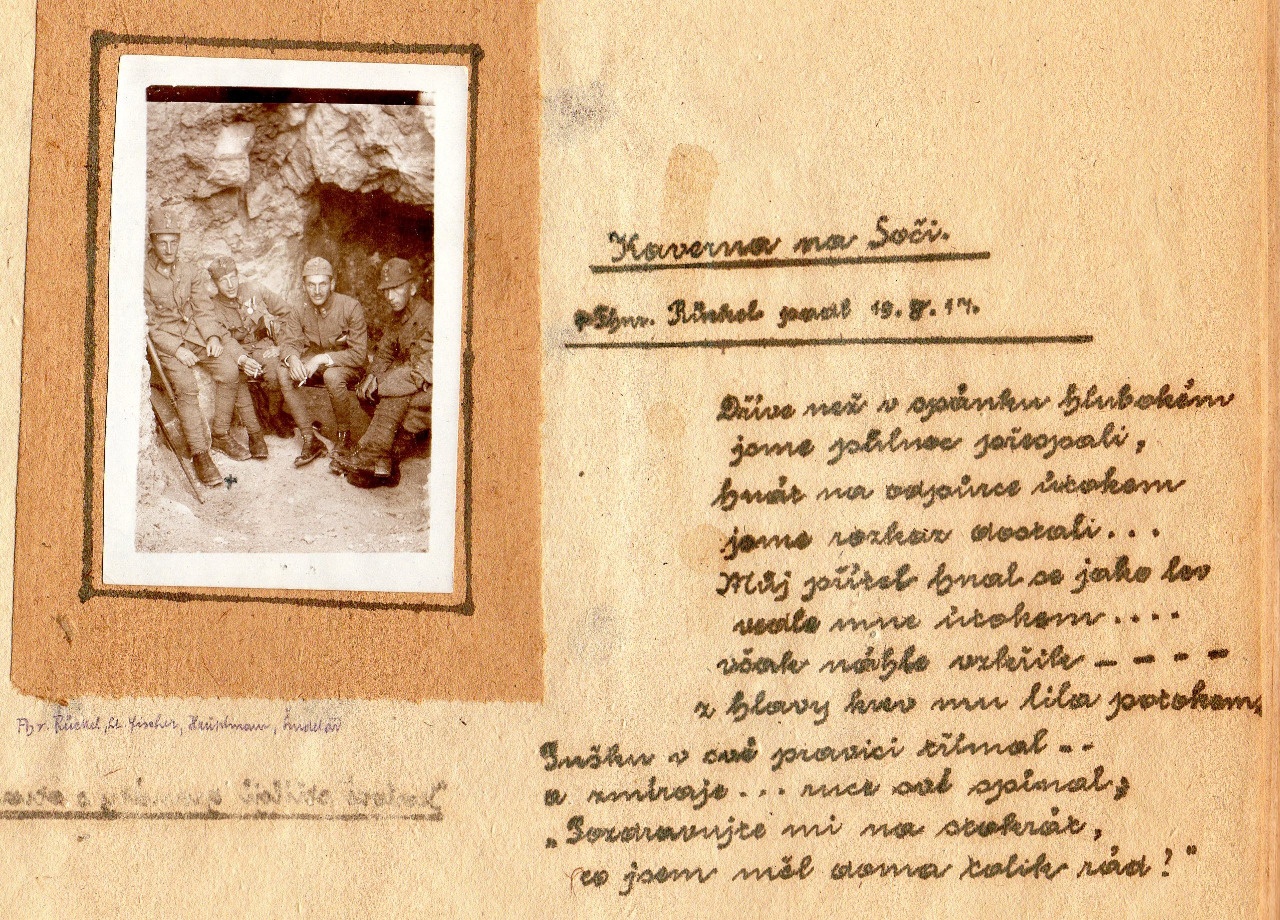 Kaverna na Soči.
Fhnr. Rückel padl 19.8.17.
Dříve než v spánku hlubokém
jsme půlnoc přespali,
hnát na odpůrce útokem
jsme rozkaz dostali...
Můj přítel hnal se jako lev
vedle mne útokem....
však náhle vzkřik - - - -
z hlavy krev mu lila potokem,
v své pravici třímal --
a zmíraje... ruce své spínal;
„Pozdravujte mi na stokrát,
co jsem měl doma tolik rád!"
Fhr. Rückel, Lt. Fischer, Hauptmann,